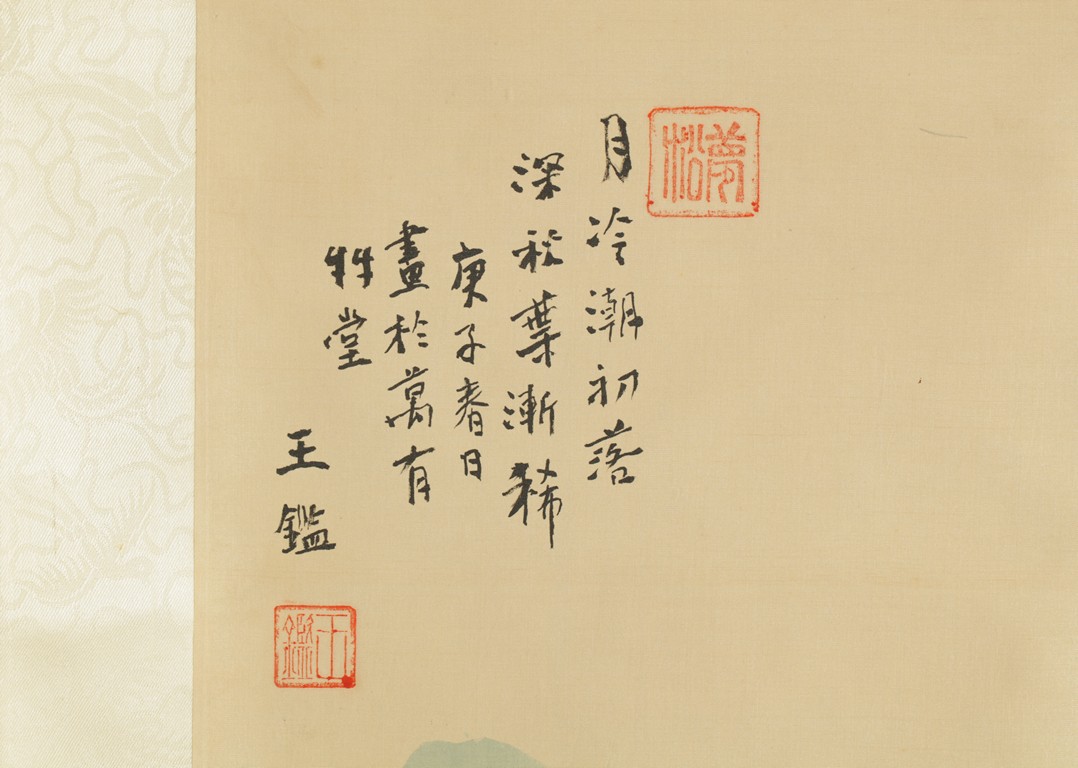 夢松
月冷潮初落
深秋葉漸稀
庚子春日
畫於萬有
竹堂
王鑑
王鑑